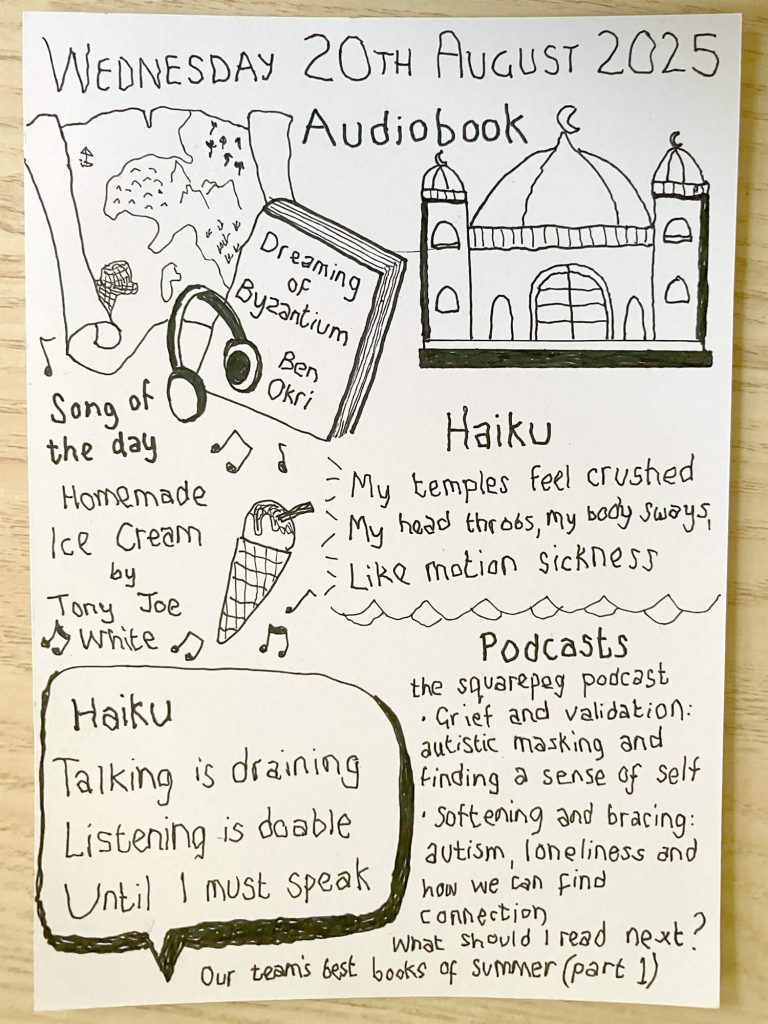 WEDNESDAY 20TH AUGUST 2025
Audiobook
Dreaming
of
Byzantium
Ben
Okri
Song of
the day
Homemade
Ice Cream
by
Tony Joe
White
Haiku
My temples feel crushed
My head throbs, my body sways,
Like motion sickness
Haiku
Talking is draining
Listening is doable
Until I must speak
Podcasts
the squarepeg podcast
• Grief and validation:
autistic masking and
finding a sense of self
• Softening and bracing:
autism, loneliness and
how we can find
connection
What should I read next?
Our team's best books of summer (part 1)